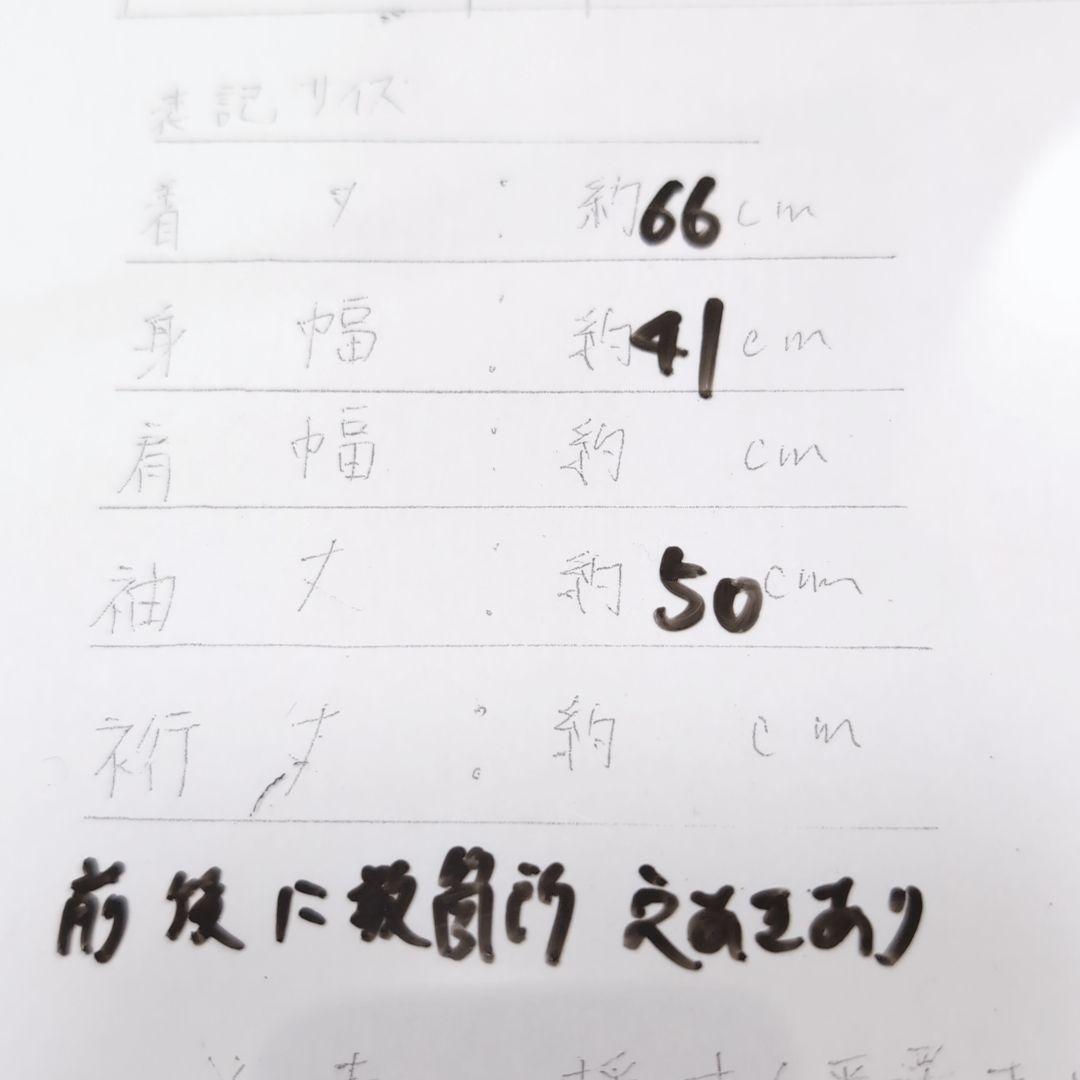 表記サイズ
着 丈 : 約66cm
身 幅 : 約41cm
肩 幅 : 約 cm
袖 丈 : 約50cm
裄 丈 : 約 cm
前後に数箇所